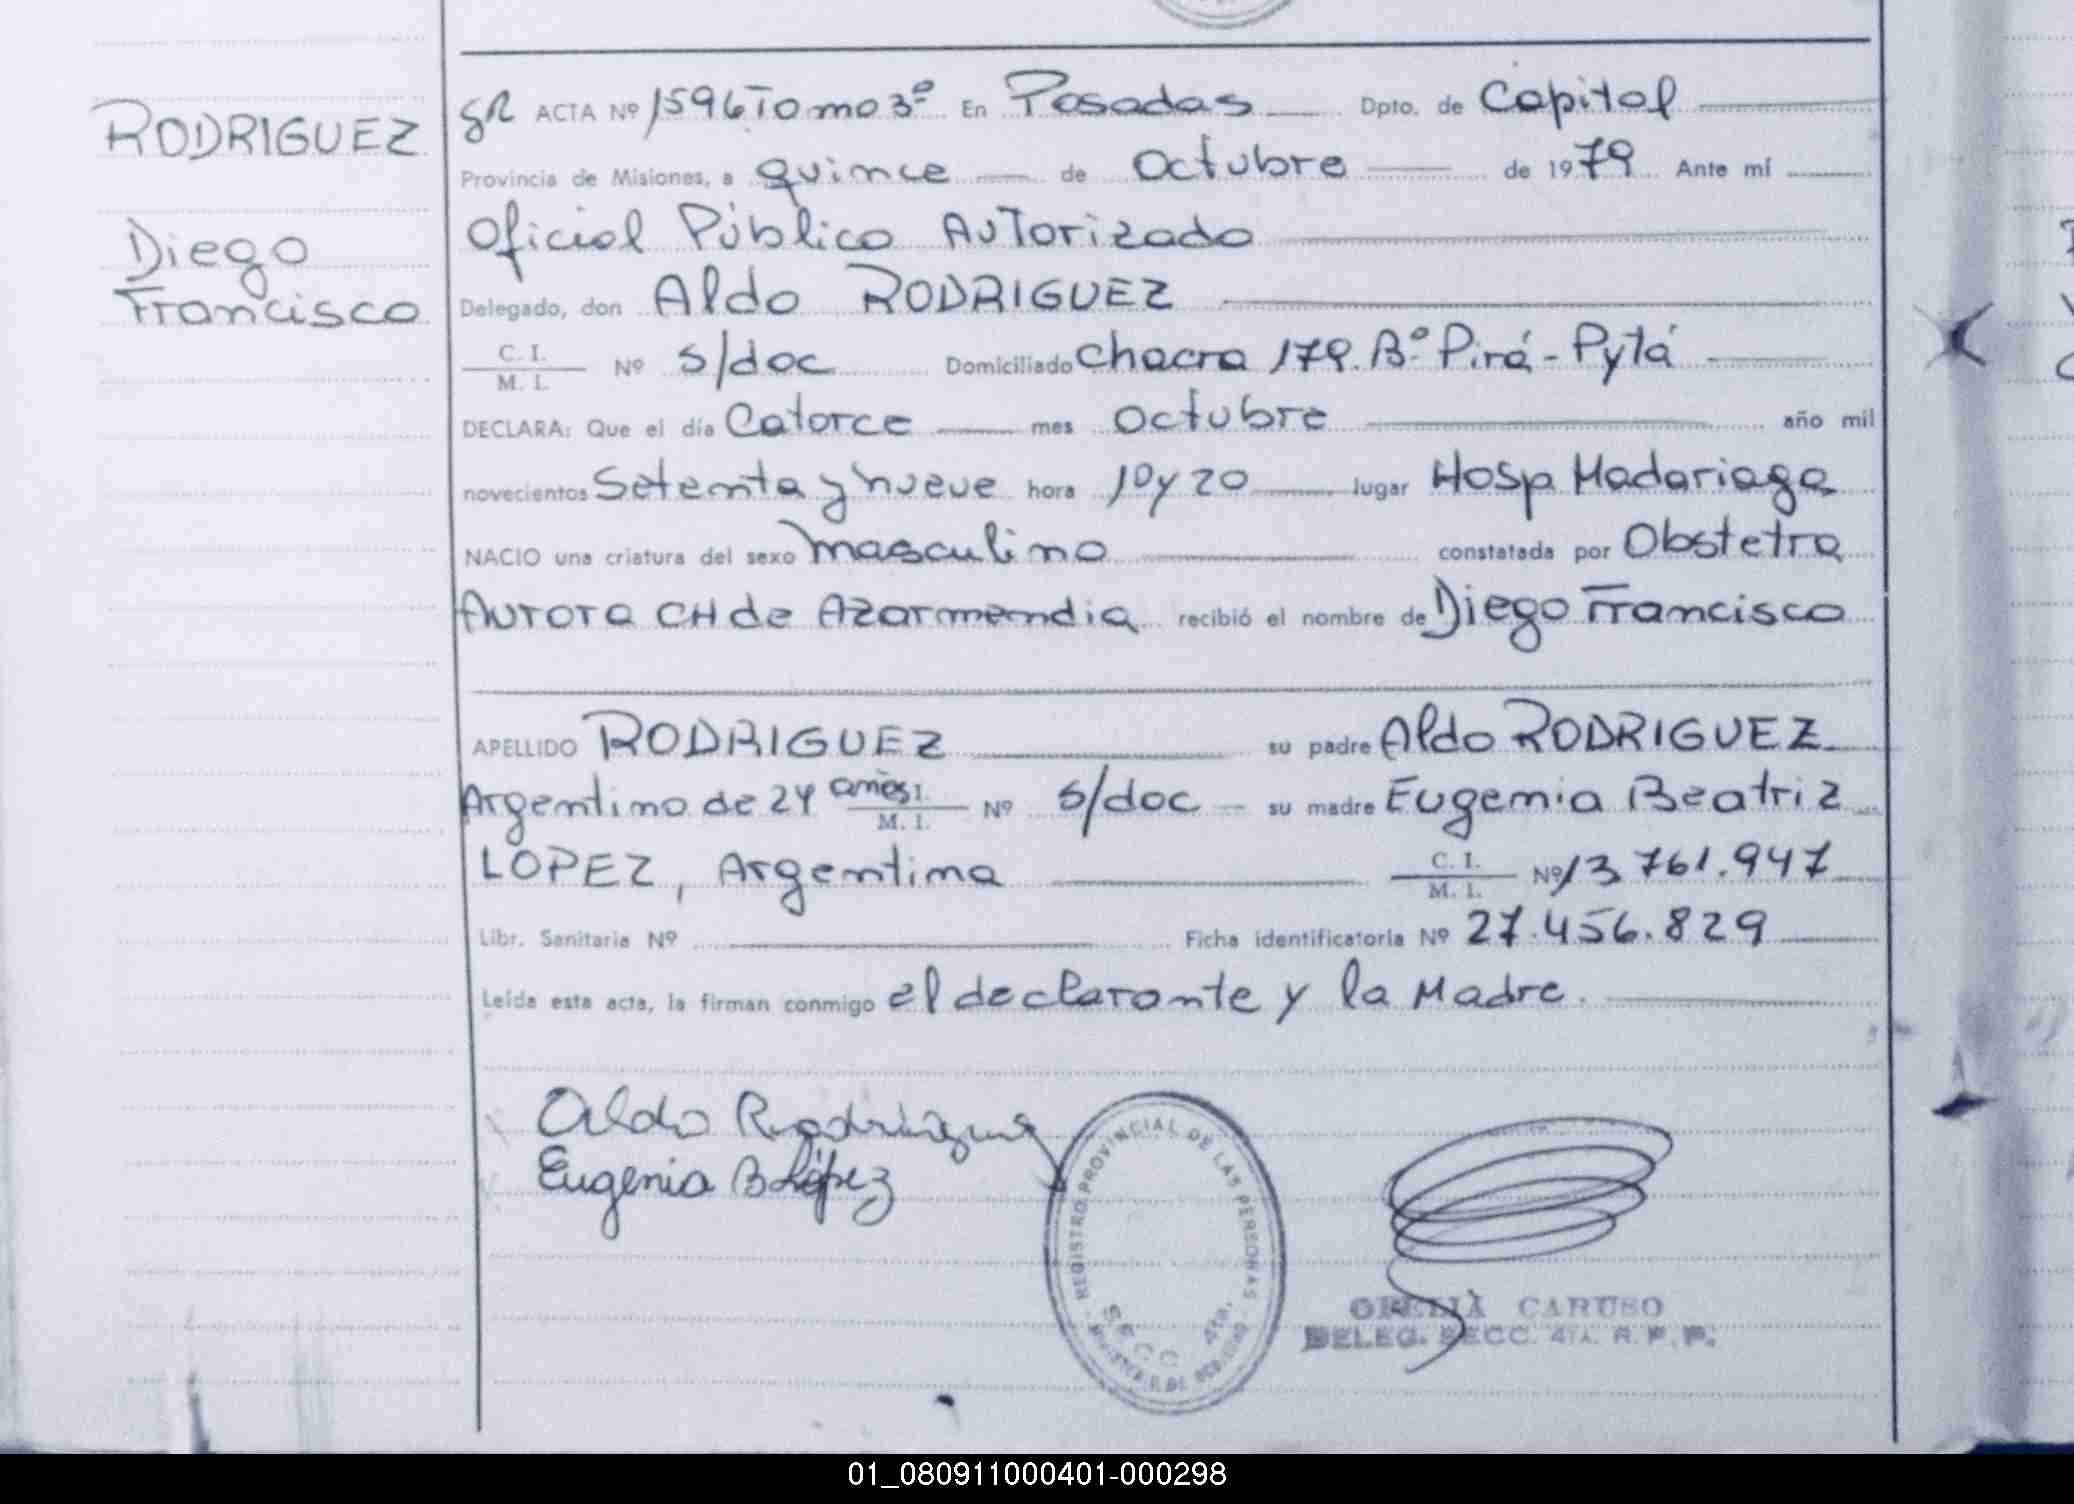 RODRIGUEZ
Diego
Francisco
ACTA Nº 1596 Tomo 3º En Posadas Dpto. de Capital
Provincia de Misiones, a quince de Octubre de 1979 Ante mí
Oficial Público Autorizado
Delegado, don Aldo RODRIGUEZ
C. I.
M. I.
Nº s/doc Domiciliado Chacra 179. Bº Pirá-Pytá
DECLARA: Que el día Catorce mes Octubre año mil
novecientos Setenta y nueve hora 10 y 20 lugar Hosp Madariaga
NACIO una criatura del sexo masculino constatada por Obstetra
Aurora CH de Azarmendia recibió el nombre de Diego Francisco
APELLIDO RODRIGUEZ su padre Aldo RODRIGUEZ
Argentino de 24 años M. I. Nº s/doc su madre Eugenia Beatriz
LOPEZ, Argentina C. I. M. I. Nº 13.761.947
Libr. Sanitaria Nº Ficha identificatoria Nº 27.456.829
Leída esta acta, la firman conmigo el declarante y la Madre.
Aldo Rodriguez
Eugenia B López
REGISTRO PROVINCIAL DE LAS PERSONAS
SECC 4ta.
CARUSO
DELEG. SECC. 4TA. R. P. P.
01_080911000401-000298